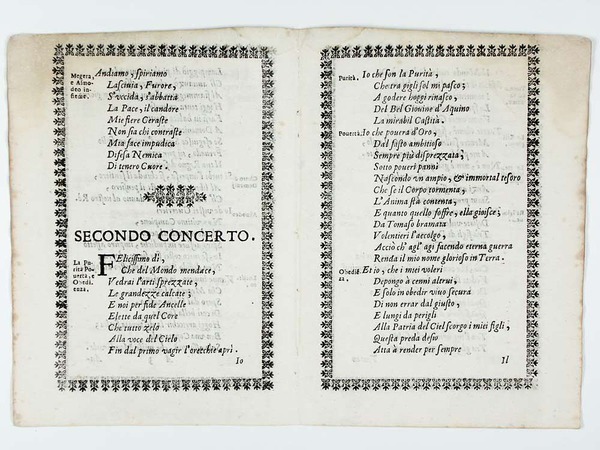 Megera, e Almodeo insieme.
Andiamo, spiriamo
Lasciuia, Furore,
S'vccida, s'abbatta
La Pace, il candore
Mie fiere Ceraste
Non sia chi contraste
Mia face impudica
Difesa Nemica
Di tenero Cuore.
SECONDO CONCERTO.
La Purità Pouertà, e Obedienza.
FElicissimo di,
Che del Mondo mendace,
Vedrai l'arti sprezzate,
Le grandezze calcate;
E noi per fide Ancelle
Elette da quel Core
Che tutto zelo
Alla voce del Cielo
Fin dal primo vagir l'orecchie aprì.
Io
Purità.
Io che son la Purità,
Che tra gigli sol mi pasco;
A godere hoggi rinasco
Del Bel Giouine d'Aquino
La mirabil Castità.
Pouertà.
Io che pouera d'Oro,
Dal fasto ambitioso
Sempre più disprezzata;
Sotto poueri panni
Nascondo vn ampio, & immortal tesoro
Che se il Corpo tormenta,
L'Anima fà contenta,
E quanto quello soffre, ella gioisce;
Da Tomaso bramata
Volentieri l'accolgo,
Acciò ch'agl'agi facendo eterna guerra
Renda il mio nome glorioso in Terra.
Obediẽza.
Et io, che i miei voleri
Depongo à cenni altrui,
E solo in obedir viuo secura
Di non errar dal giusto,
E lungi da perigli
Alla Patria del Ciel scorgo i miei figli,
Questa preda desio
Atta à render per sempre
Il